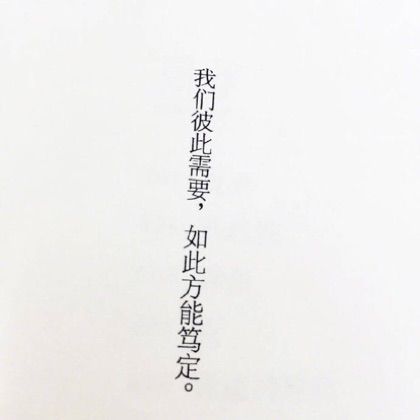 我们彼此需要，如此方能笃定。